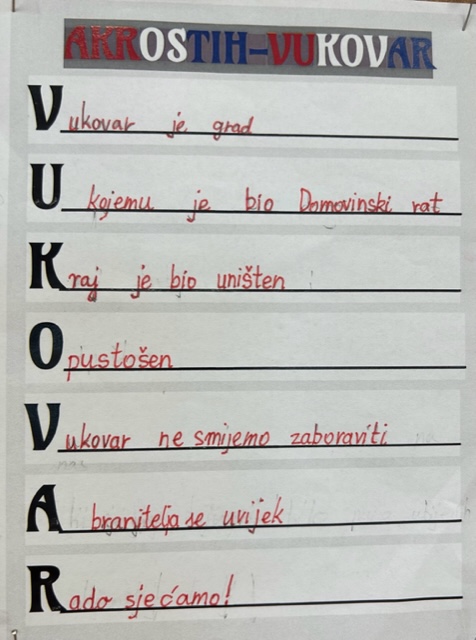 AKROSTIH-VUKOVAR
Vukovar je grad
U kojemu je bio Domovinski rat
Kraj je bio uništen
Opustošen
Vukovar ne smijemo zaboraviti
A branitelja se uvijek
Rado sjećamo!